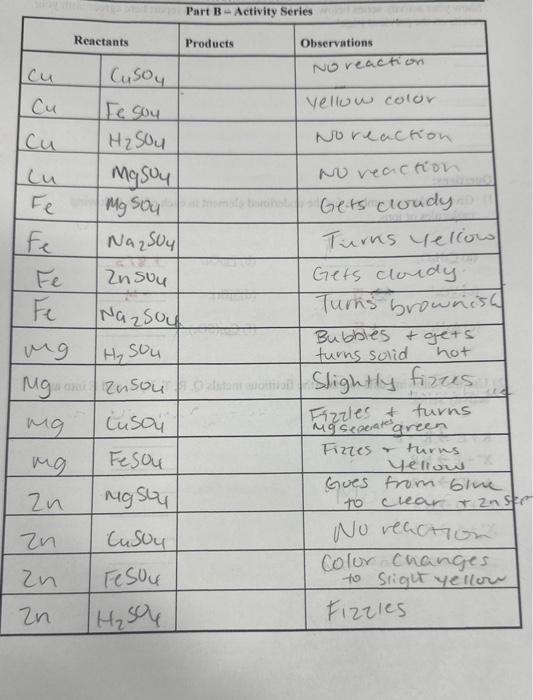 Part B – Activity Series
Reactants Products Observations
Cu CuSO4 No reaction
Cu FeSO4 Yellow color
Cu H2SO4 No reaction
Cu MgSO4 No reaction
Fe MgSO4 Gets cloudy
Fe Na2SO4 Turns yellow
Fe ZnSO4 Gets cloudy
Fe Na2SO4 Turns brownish
Mg H2SO4 Bubbles + gets
turns solid hot
Mg ZnSO4 Slightly fizzes
Mg CuSO4 Fizzles + turns
Mg seperates green
Mg FeSO4 Fizzes + turns
yellow
Zn MgSO4 Goes from blue
to clear + Zn
Zn CuSO4 No reaction
Zn FeSO4 Color changes
to slight yellow
Zn H2SO4 Fizzles